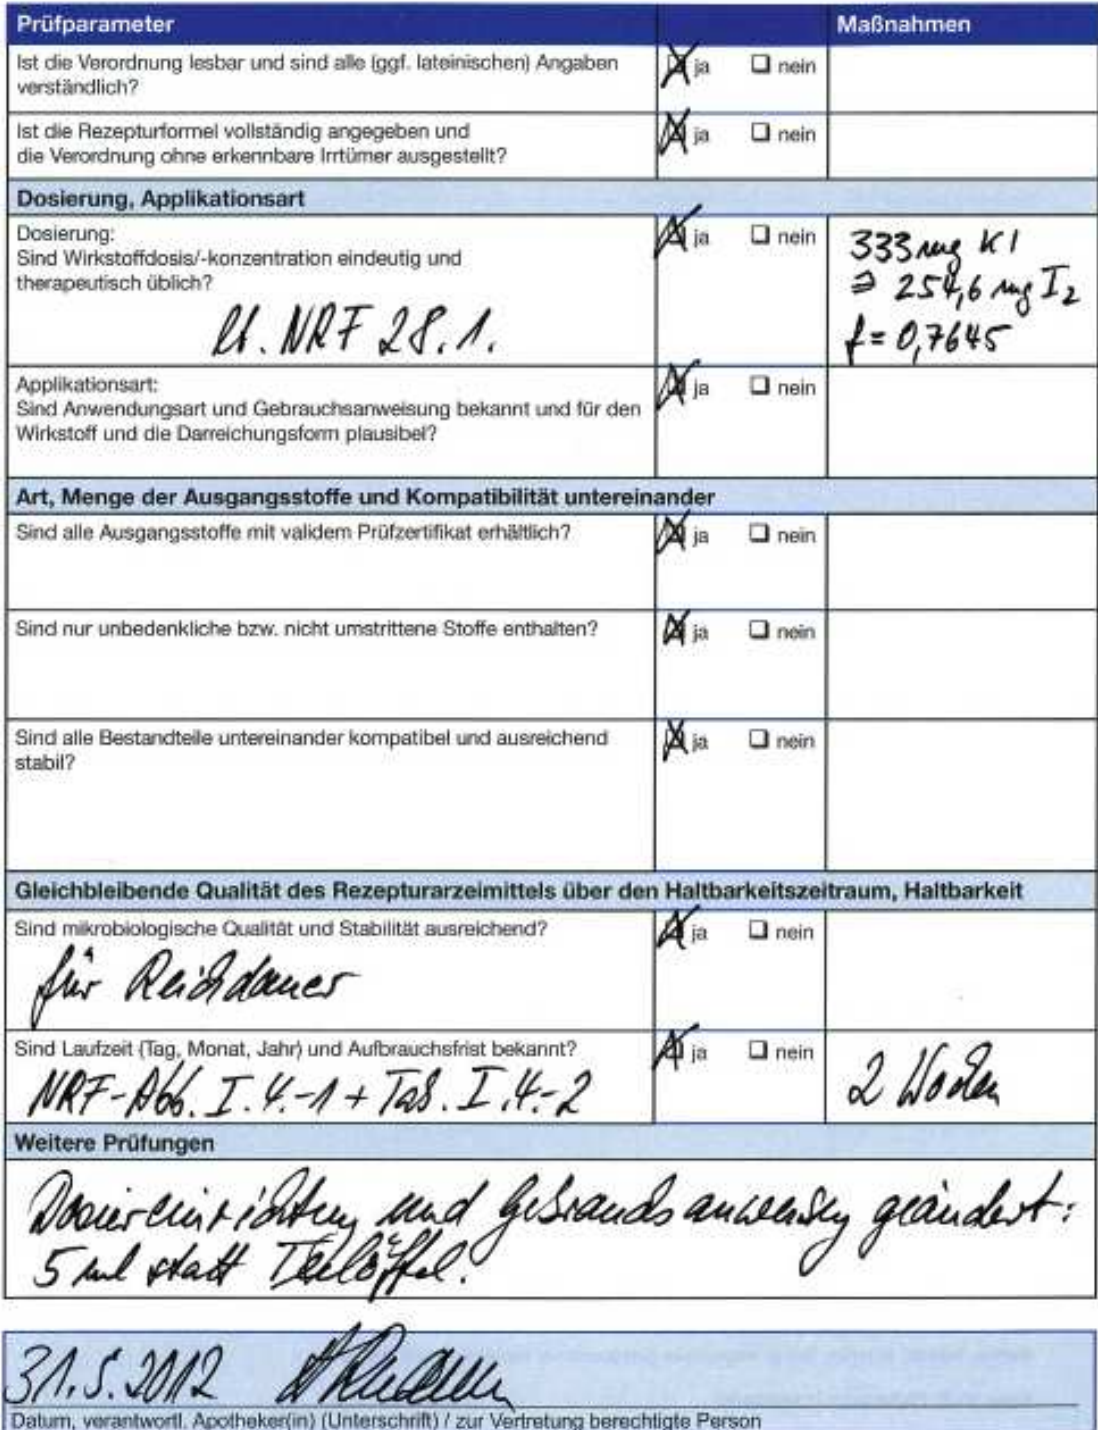 Prüfparameter Maßnahmen
Ist die Verordnung lesbar und sind alle (ggf. lateinischen) Angaben ja nein
verständlich?
Ist die Rezepturformel vollständig angegeben und ja nein
die Verordnung ohne erkennbare Irrtümer ausgestellt?
Dosierung, Applikationsart
Dosierung: ja nein 333 mg KI
Sind Wirkstoffdosis/-konzentration eindeutig und ≙ 254,6 mg I2
therapeutisch üblich? f = 0,7645
lt. NRF 28.1.
Applikationsart: ja nein
Sind Anwendungsart und Gebrauchsanweisung bekannt und für den
Wirkstoff und die Darreichungsform plausibel?
Art, Menge der Ausgangsstoffe und Kompatibilität untereinander
Sind alle Ausgangsstoffe mit validem Prüfzertifikat erhältlich? ja nein
Sind nur unbedenkliche bzw. nicht umstrittene Stoffe enthalten? ja nein
Sind alle Bestandteile untereinander kompatibel und ausreichend ja nein
stabil?
Gleichbleibende Qualität des Rezepturarzeimittels über den Haltbarkeitszeitraum, Haltbarkeit
Sind mikrobiologische Qualität und Stabilität ausreichend? ja nein
für Reichdauer
Sind Laufzeit (Tag, Monat, Jahr) und Aufbrauchsfrist bekannt? ja nein
NRF-Abb. I.4.-1 + Tab. I.4.-2 2 Wochen
Weitere Prüfungen
Dosiereinrichtung und Gebrauchsanweisung geändert:
5 ml statt Teelöffel.
31.5.2012
Datum, verantwortl. Apotheker(in) (Unterschrift) / zur Vertretung berechtigte Person